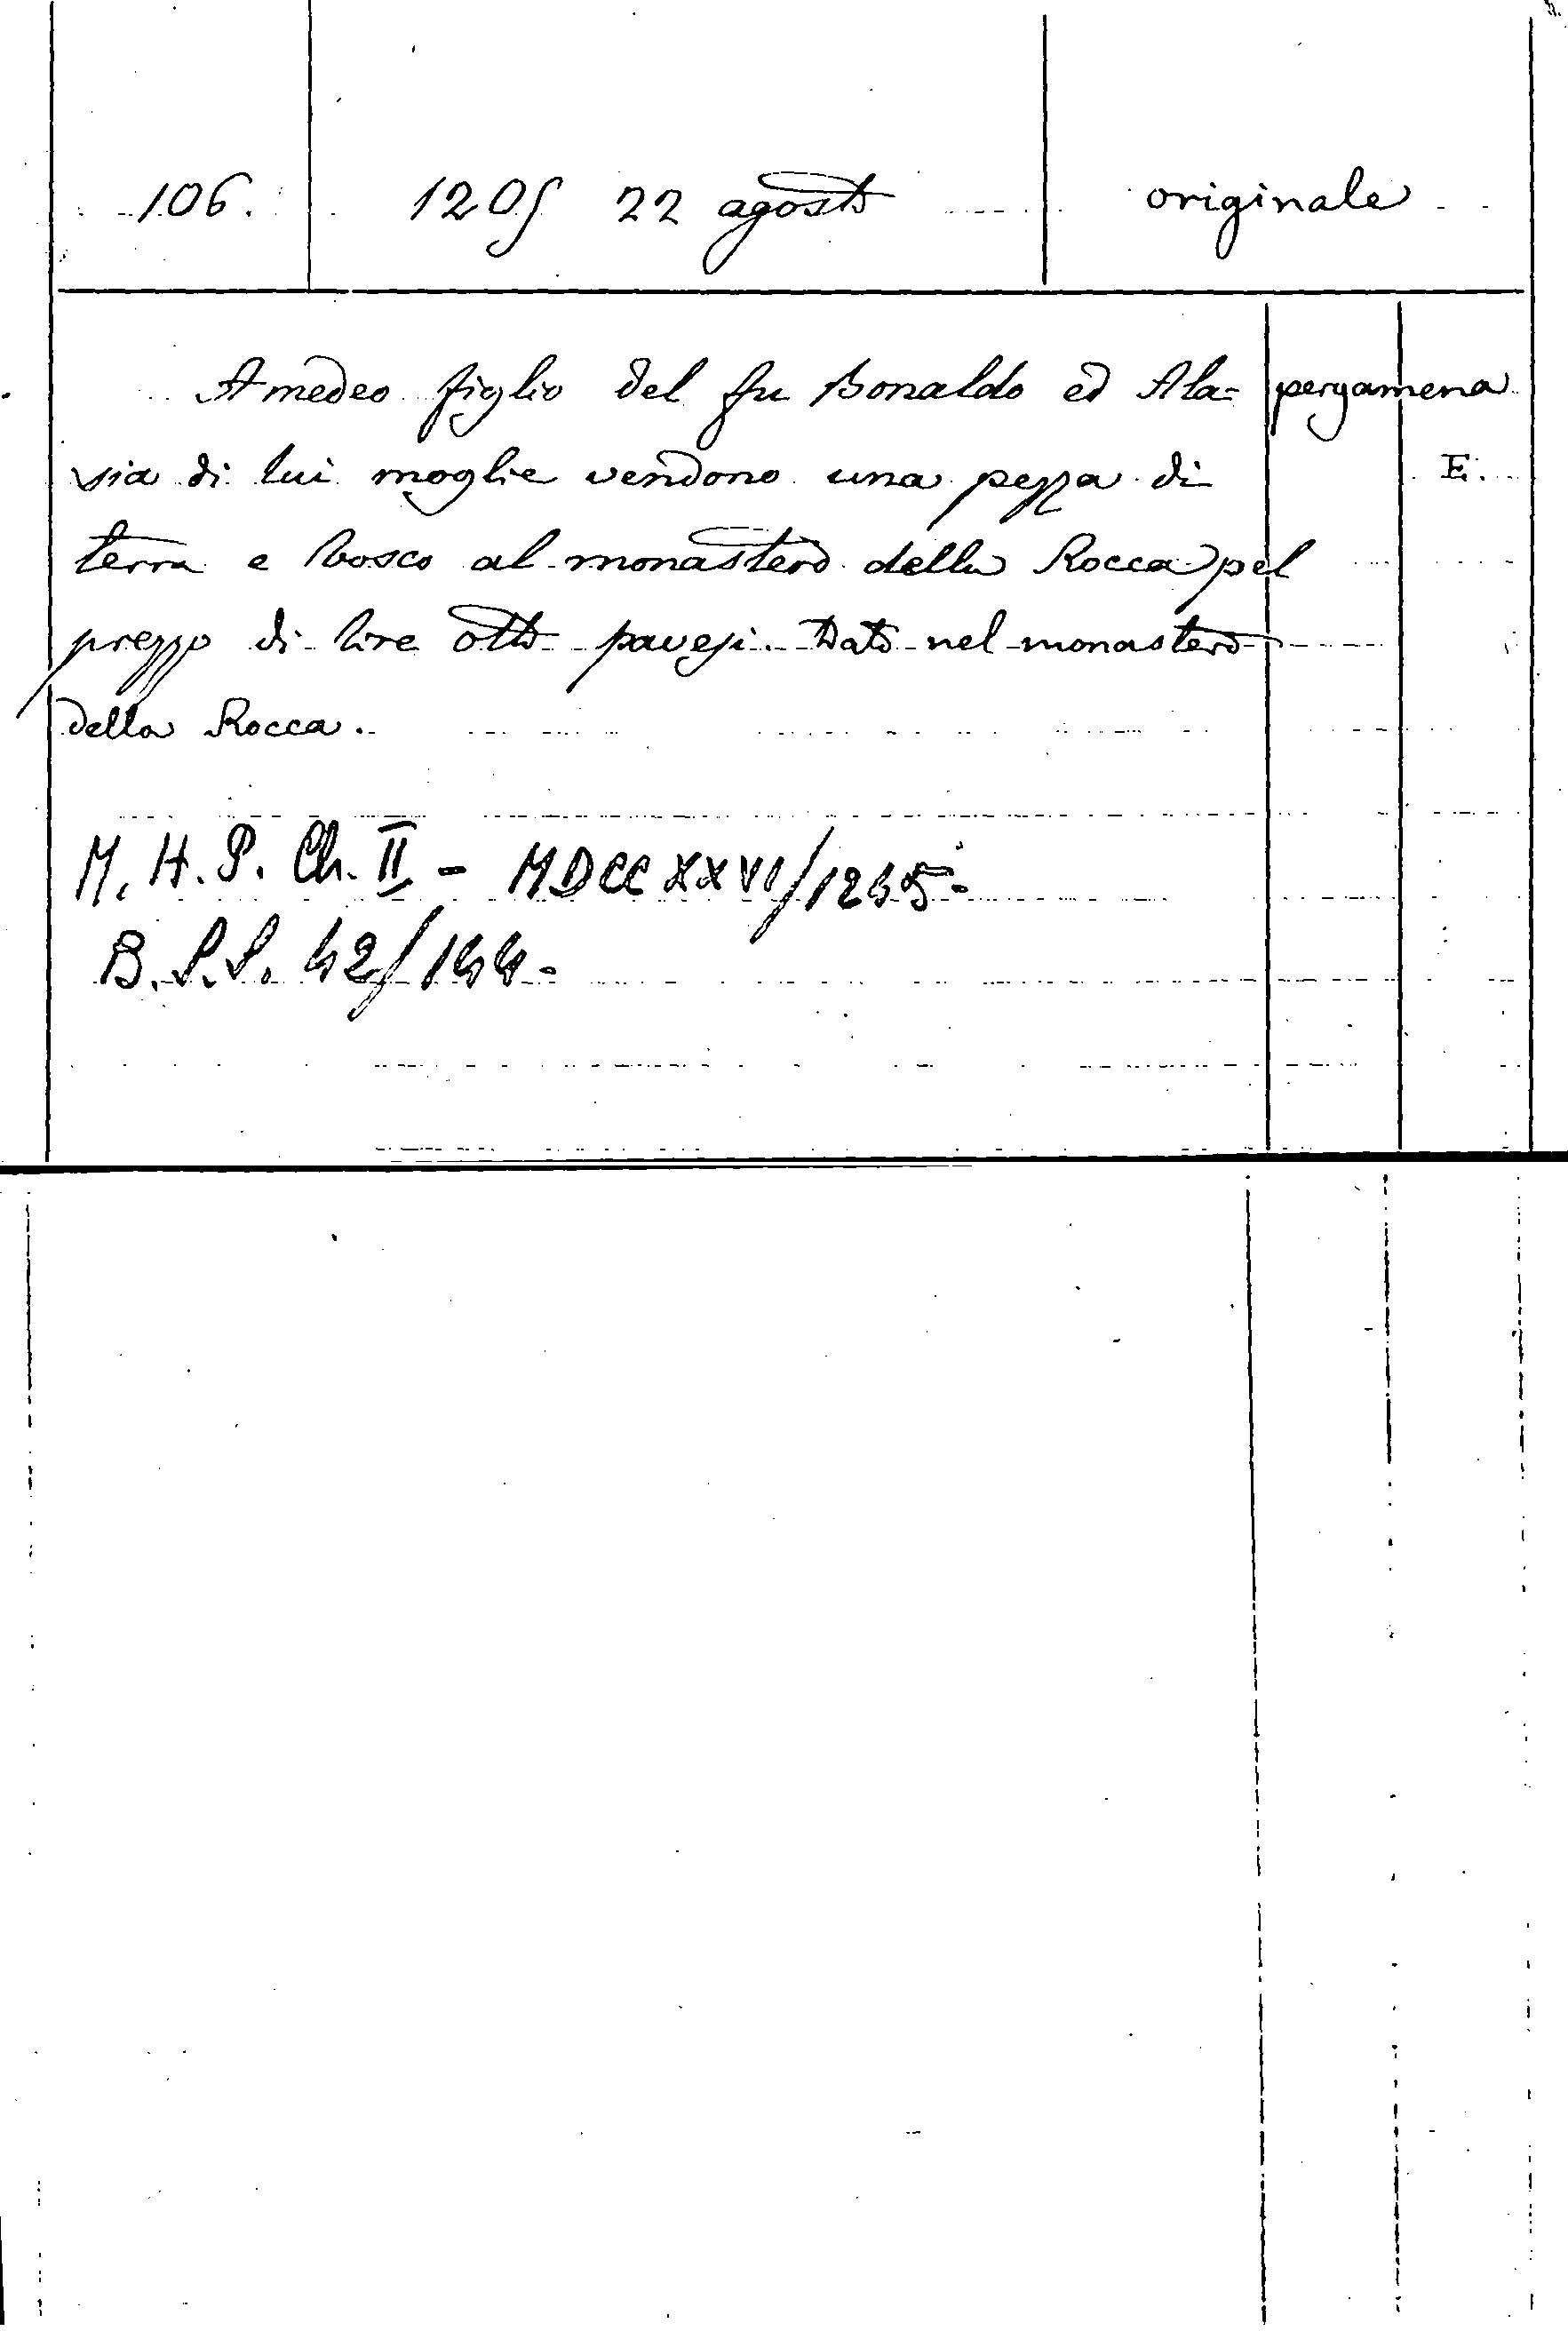 106. 1205 22 agosto originale
Amedeo figlio del fu Bonaldo ed Ala= pergamena
sia di lui moglie vendono una pezza di E.
terra e bosco al monastero della Rocca pel
prezzo di lire otto pavesi. Dato nel monastero
della Rocca.
M. H. P. Ch. II - MDCCXXVI/1245-
B. S. S. 42/144-